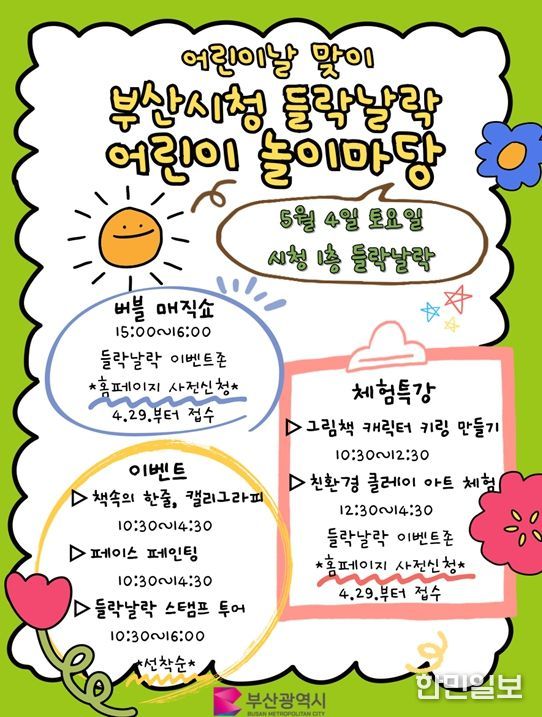 어린이날 맞이
부산시청 들락날락
어린이 놀이마당
5월 4일 토요일
시청 1층 들락날락
버블 매직쇼
15:00~16:00
들락날락 이벤트존
*홈페이지 사전신청*
4.29.부터 접수
체험특강
▷그림책 캐릭터 키링 만들기
10:30~12:30
▷친환경 클레이 아트 체험
12:30~14:30
들락날락 이벤트존
*홈페이지 사전신청*
4.29.부터 접수
이벤트
▷책속의 한줄, 캘리그라피
10:30~14:30
▷페이스 페인팅
10:30~14:30
▷들락날락 스탬프 투어
10:30~16:00
*선착순*
부산광역시
BUSAN METROPOLITAN CITY
한민일보